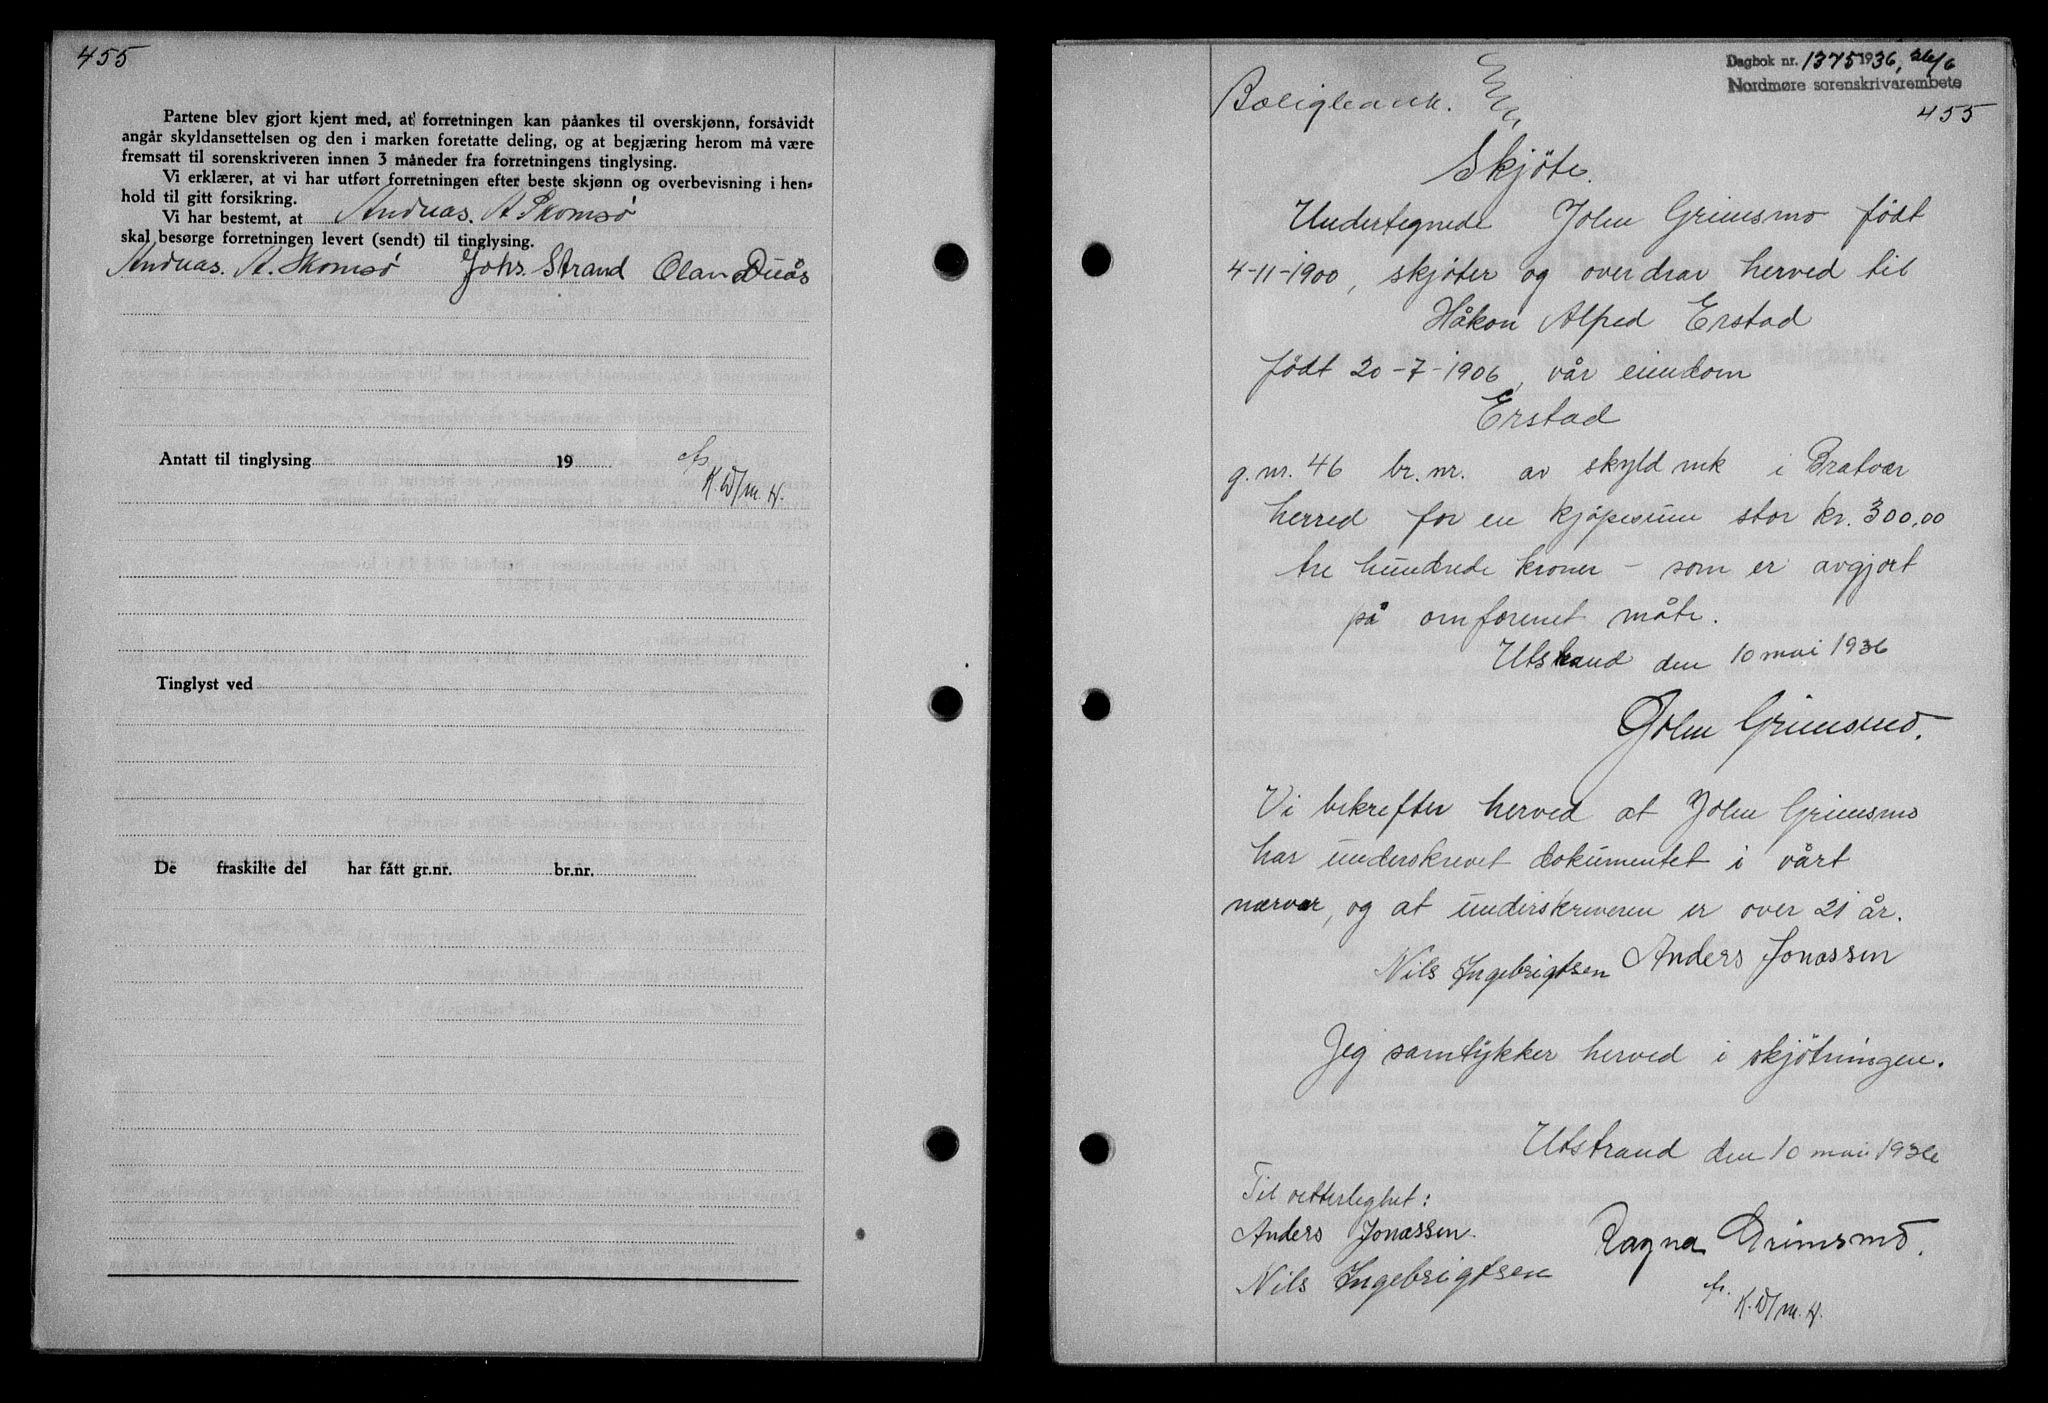 455
Partene blev gjort kjent med, at forretningen kan påankes til overskjønn, forsåvidt
angår skyldansettelsen og den i marken foretatte deling, og at begjæring herom må være
fremsatt til sorenskriveren innen 3 måneder fra forretningens tinglysing.
Vi erklærer, at vi har utført forretningen efter beste skjønn og overbevisning i hen-
hold til gitt forsikring.
Vi har bestemt, at Andreas. A Skomsø
skal besørge forretningen levert (sendt) til tinglysing.
Andreas. A. Skomsø Johs. Strand Olav Duås
Antatt til tinglysing 19
K.W/M.H.
Tinglyst ved
De fraskilte del har fått gr.nr. br.nr.
Dagbok nr. 1375 1936, 26/6
Nordmøre sorenskrivarembete
455
Boligbank.
Skjöte.
Undertegnede John Grimsmo født
4-11-1900, skjøter og overdrar herved til
Håkon Alfred Erstad
født 20-7-1906, vår eiendom
Erstad
g.nr. 46 br.nr. av skyld mk i Bratvær
herred for en kjøpesum stor kr. 300,00
tre hundrede kroner - som er avgjort
på omforenet måte.
Utstrand den 10 mai 1936
John Grimsmo.
Vi bekrefter herved at John Grimsmo
har underskrevet dokumentet i vårt
nærvær, og at underskriveren er over 21 år.
Nils Ingebrigtsen Anders Jonassen
Jeg samtykker herved i skjötningen.
Utstrand den 10 mai 1936
Til vitterlighet:
Anders Jonassen.
Nils Ingebrigtsen
Ragna Grimsmo.
K.W/M.H.